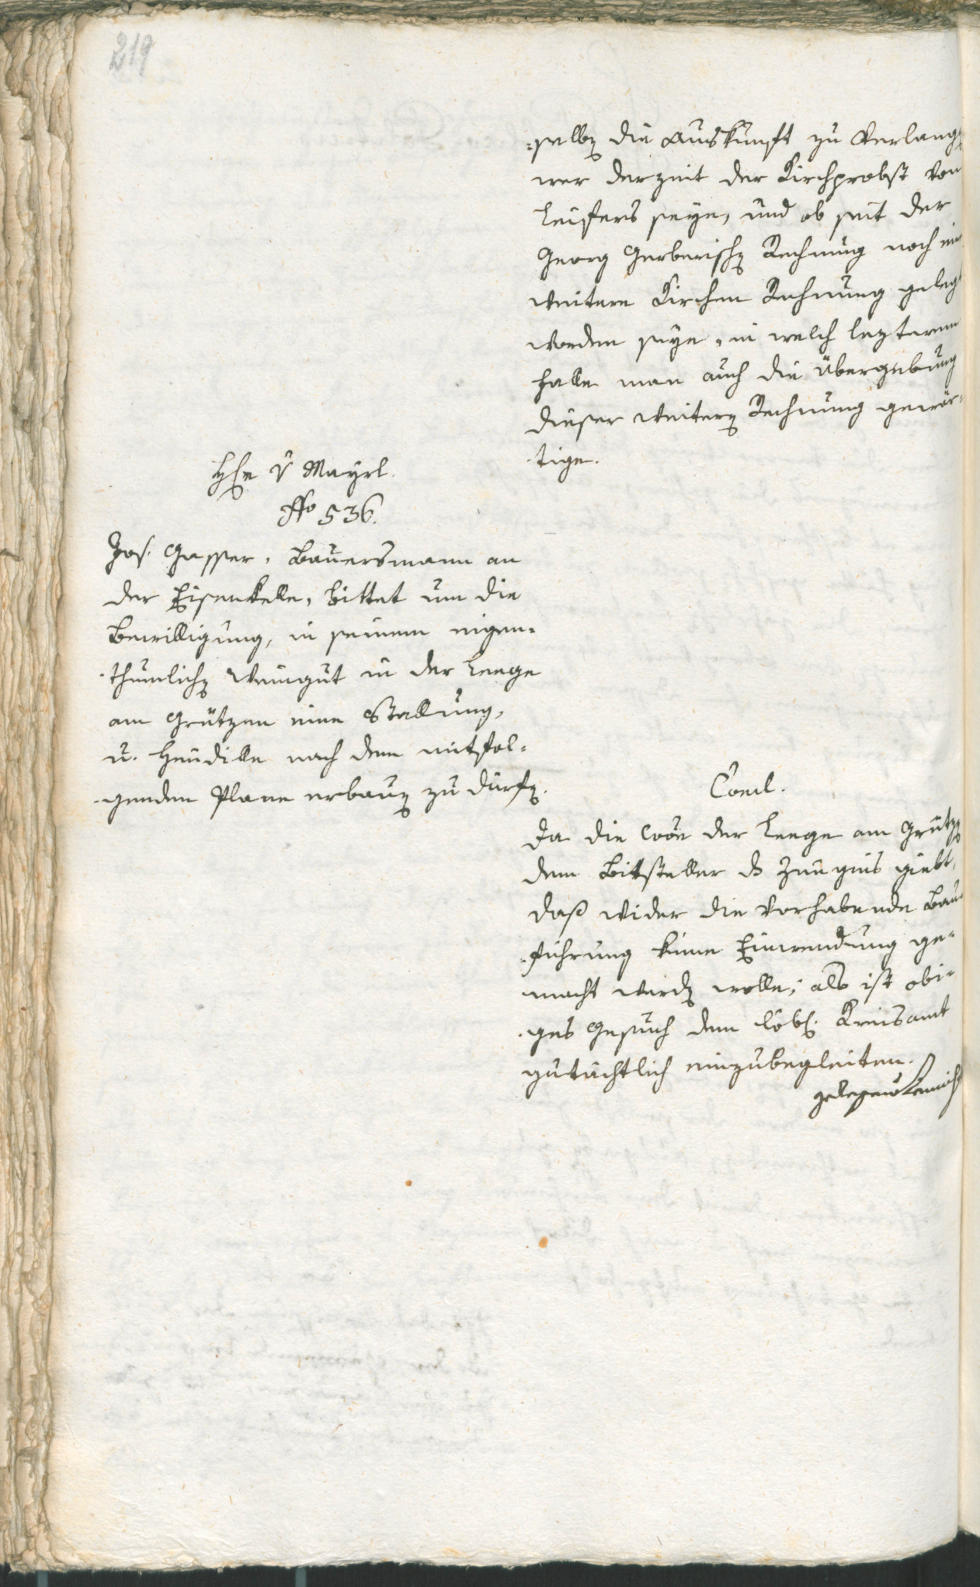 219
selbẽ die Auskunft zu verlangẽ
wer derzeit der Kirchprobst von
Leifers seye, und ob seit der
Georg Gerberischẽ Rechnung noch ein
weitere Kirchen Rechnung gelegt
worden seye, in welch lezterem
Falle man auch die Übergebung
dieser weiterẽ Rechnung gewär-
tige.
H v Mayrl.
No 536.
Jos. Gasser, Bauersmann an
der Eisenkelle, bittet um die
Bewilligung, in seinem eigen-
thümlichẽ Weingut in der Leege
am Grützen eine Stallung,
u. Heudille nach dem mitfol-
genden Plane erbauẽ zu dürfẽ.
Concl.
Da die der Leege am Grützẽ
dem Bittsteller ds Zeugnis giebt,
daß wider die vorhabende Bau-
führung keine Einwendung ge-
macht werdẽ wolle; als ist obi-
ges Gesuch dem löbl. Kreisamt
gutächtlich einzubegleiten.